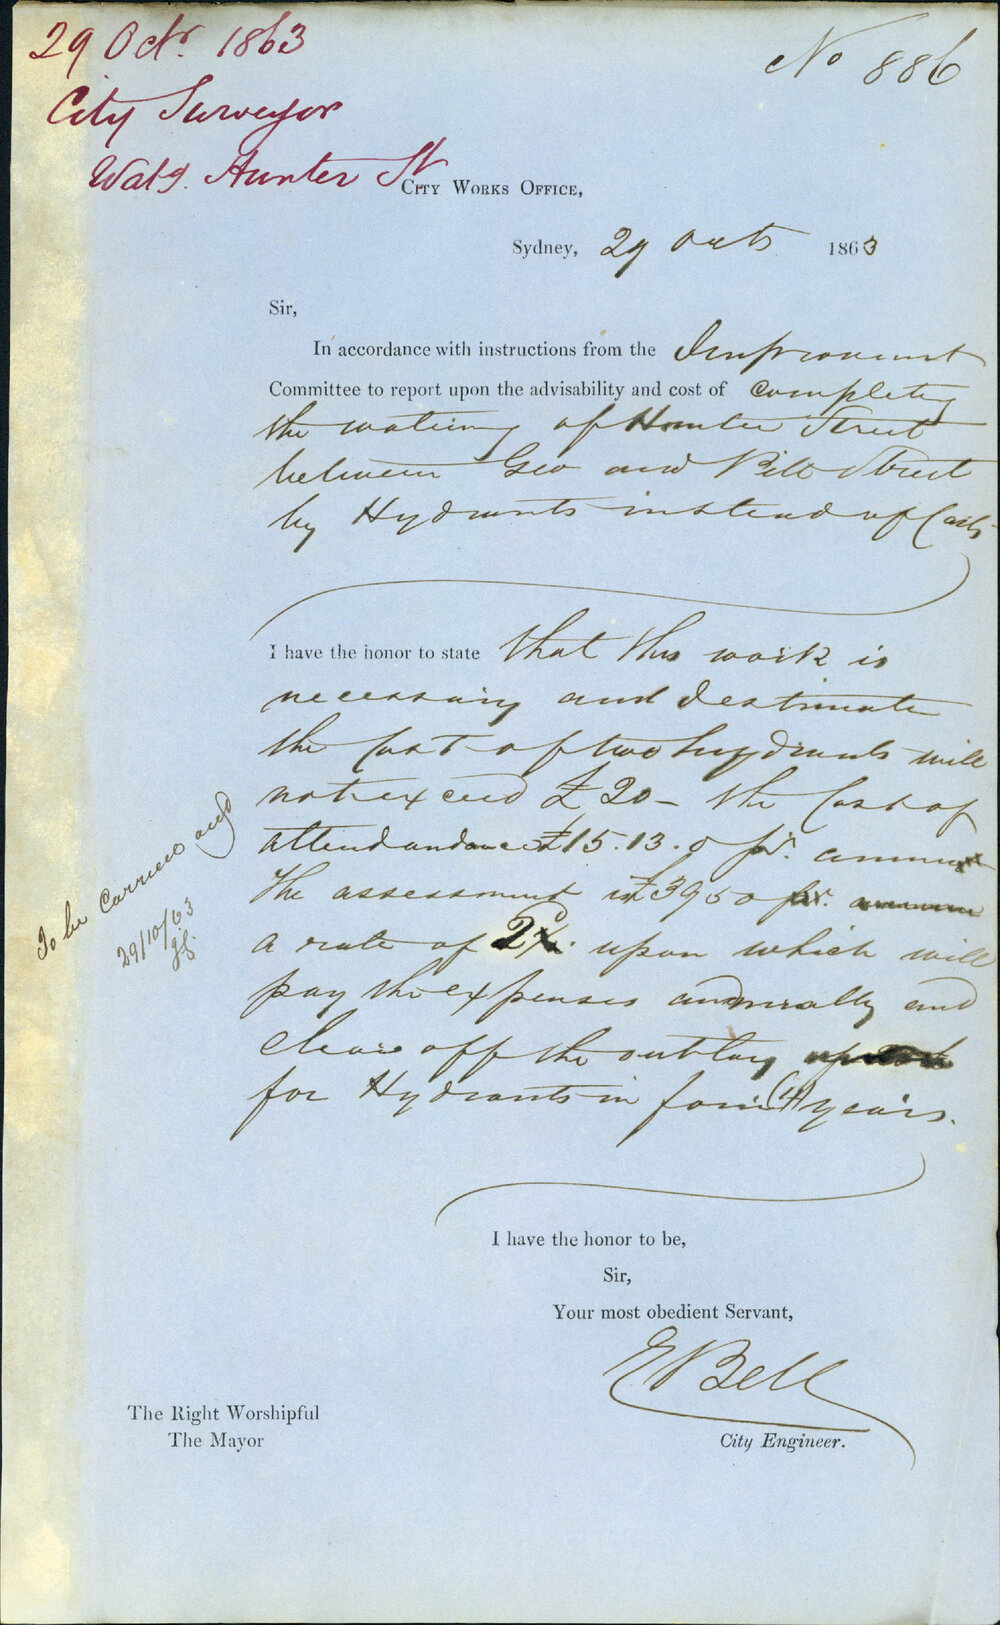 29 Octr. 1863
No 886
City Surveyor
Watg. Hunter St
CITY WORKS OFFICE,
Sydney, 29 Octr 1863
Sir,
In accordance with instructions from the Improvement
Committee to report upon the advisability and cost of completing
the watering of Hunter Street
between Geo and Pitt Street
by Hydrants instead of Carts
I have the honor to state that this work is
necessary and I estimate
the Cost of two hydrants will
not exceed £20 - the Cost of
attendandance £15.13.0 pr. annum
The assessment is £3950 pr. annum
a rate of 2d. upon which will
pay the expenses annually and
clear off the outlay
for Hydrants in four (4) years.
To be carried out
29/10/63
I have the honor to be,
Sir,
Your most obedient Servant,
E Bell
City Engineer.
The Right Worshipful
The Mayor